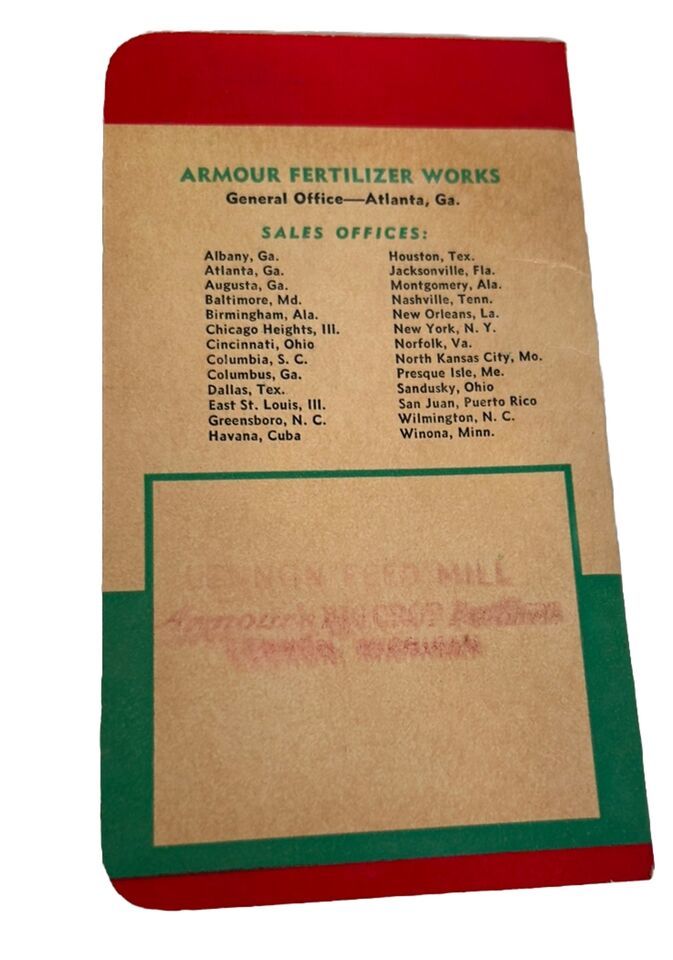 ARMOUR FERTILIZER WORKS
General Office—Atlanta, Ga.
SALES OFFICES:
Albany, Ga.
Atlanta, Ga.
Augusta, Ga.
Baltimore, Md.
Birmingham, Ala.
Chicago Heights, Ill.
Cincinnati, Ohio
Columbia, S. C.
Columbus, Ga.
Dallas, Tex.
East St. Louis, Ill.
Greensboro, N. C.
Havana, Cuba
Houston, Tex.
Jacksonville, Fla.
Montgomery, Ala.
Nashville, Tenn.
New Orleans, La.
New York, N. Y.
Norfolk, Va.
North Kansas City, Mo.
Presque Isle, Me.
Sandusky, Ohio
San Juan, Puerto Rico
Wilmington, N. C.
Winona, Minn.
LENNON FEED MILL
Armour's BIG CROP Fertilizers
LENNON, MICHIGAN